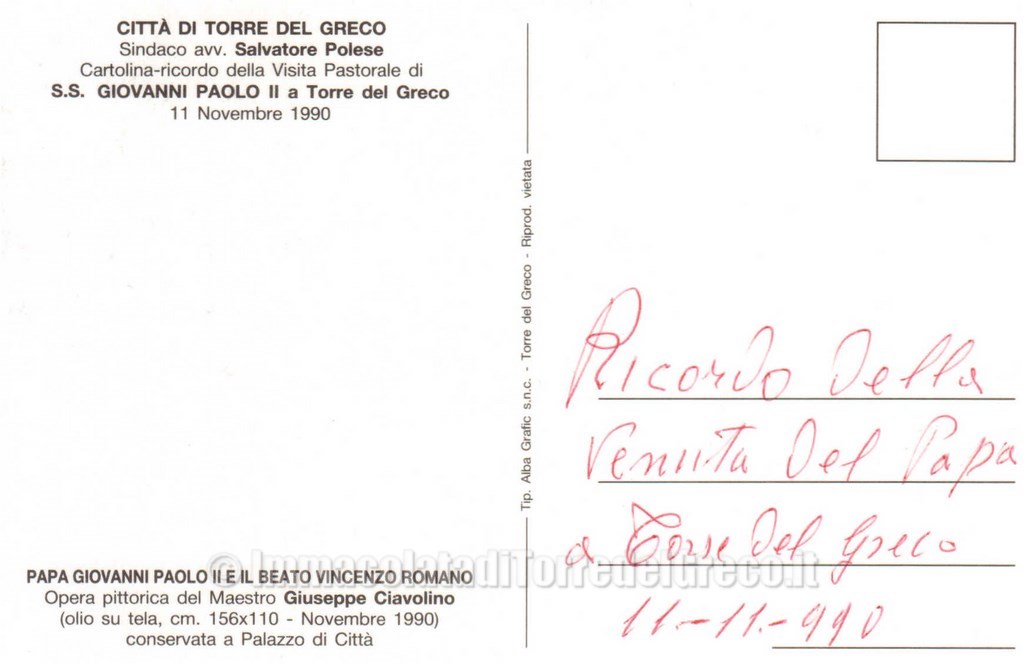 CITTÀ DI TORRE DEL GRECO
Sindaco avv. Salvatore Polese
Cartolina-ricordo della Visita Pastorale di
S.S. GIOVANNI PAOLO II a Torre del Greco
11 Novembre 1990
PAPA GIOVANNI PAOLO II E IL BEATO VINCENZO ROMANO
Opera pittorica del Maestro Giuseppe Ciavolino
(olio su tela, cm. 156x110 - Novembre 1990)
conservata a Palazzo di Città
Tip. Alba Grafic s.n.c. - Torre del Greco - Riprod. vietata
Ricordo Della
Venuta Del Papa
a Torre Del Greco
11-11-990
© ImmacolatadiTorredelGreco.it